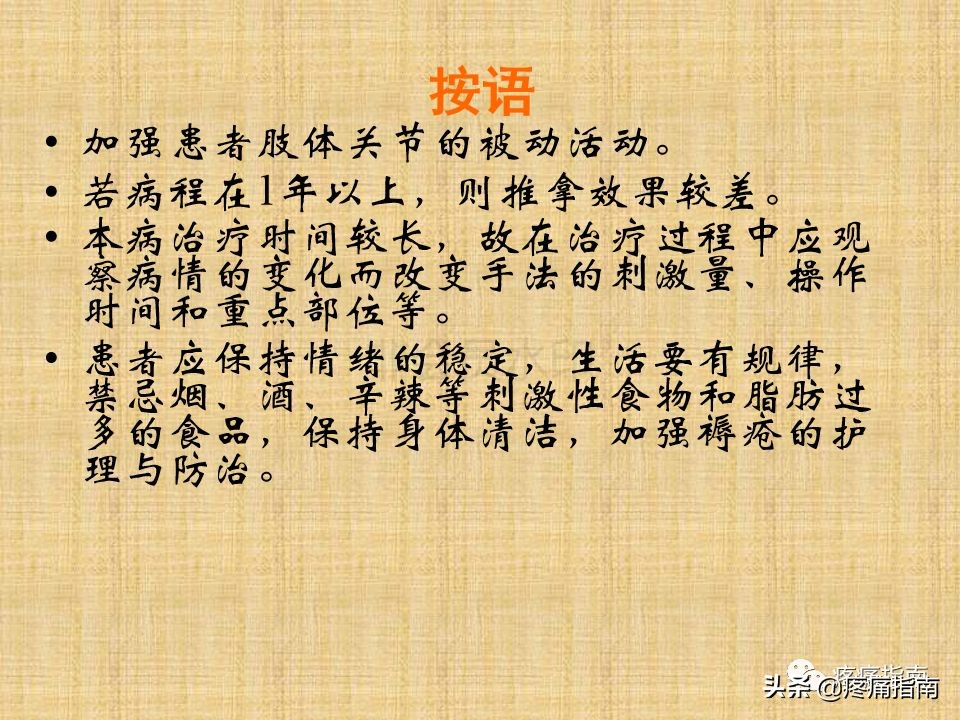 按语
• 加强患者肢体关节的被动活动。
• 若病程在1年以上，则推拿效果较差。
• 本病治疗时间较长，故在治疗过程中应观
察病情的变化而改变手法的刺激量、操作
时间和重点部位等。
• 患者应保持情绪的稳定，生活要有规律，
禁忌烟、酒、辛辣等刺激性食物和脂肪过
多的食品，保持身体清洁，加强褥疮的护
理与防治。
疼痛指南
头条 @疼痛指南